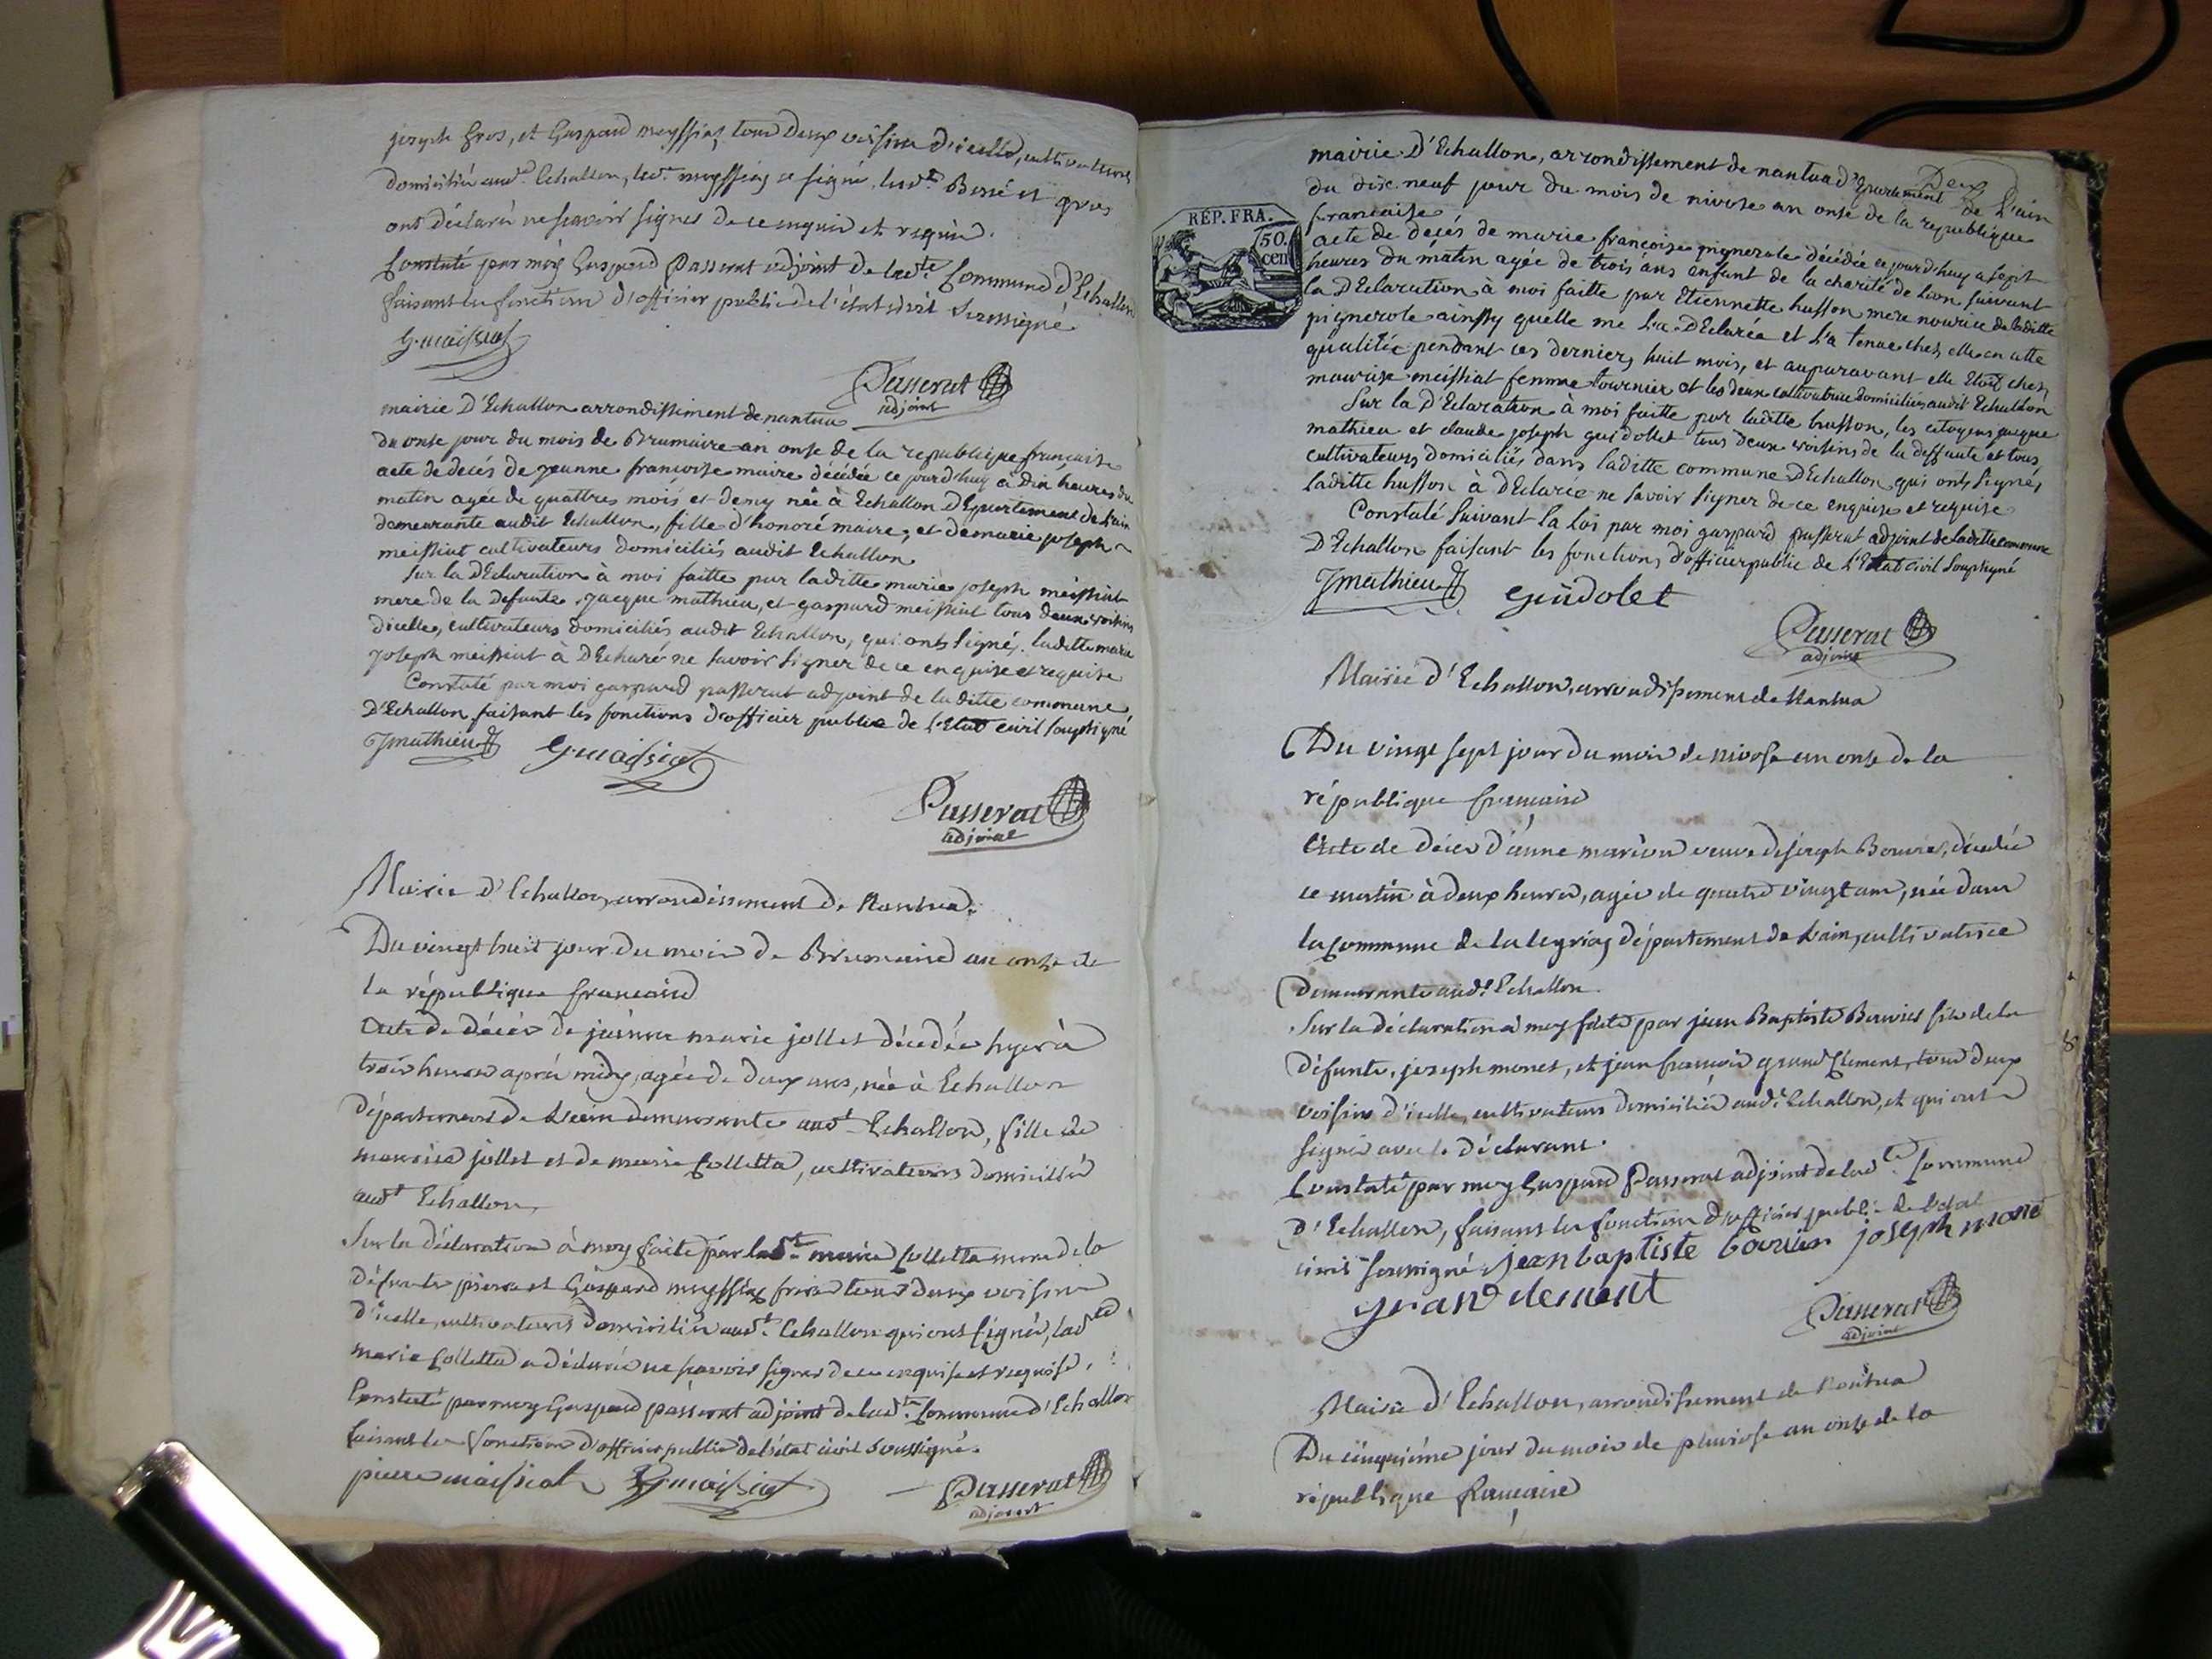 joseph Gros, et Gaspard meyssiat tous deux voisins d'icelle, cultivateurs
domiciliés aud.t Echallon, led.t meyssiat a signé, lesd.ts Bossé et gros
ont déclaré ne scavoir signer de ce enquis et requis.
Constaté par moy Gaspard Passerat adjoint de lad.te Commune d'Echallon
faisant les fonctions d'officier public de l'état civil Soussigné
G. maissiat
Passerat
adjoint
mairie D'Echallon arrondissiment de nantua
du onse jour du mois de Brumaire an onse de la republique francaise
acte de decés de jeanne francoise maire décédée ce jourd'huy à dix heures du
matin agée de quattres mois et demy née à Echallon DEpartement de L'ain
demeurante audit Echallon, fille d'honoré maire, et de marie joseph
meissiat cultivateurs domiciliés audit Echallon
Sur la DEclaration à moi faitte par laditte marie joseph meissiat
mere de la defunte, jacque mathieu, et gaspard meissiat tous deux voisins
dicelle, cultivateurs domiciliés audit Echallon, qui onts signés, laditte marie
joseph meissiat à DEclaré ne savoir signer de ce enquise et requise
Constaté par moi gaspard passerat adjoint de laditte commune
D'Echallon faisant les fonctions d'officier public de L'Etat civil soussigné
Jmathieu G. maissiat
Passerat
adjoint
Mairie d'Echallon, arrondissement de Nantua.
Du vingt huit jour du mois de Brumaire an onze de
la république francaise
Acte de décès de jeanne marie jollet décédée hyer à
trois heures après midy, agée de deux ans, née à Echallon
département de L'ain demeurante aud.t Echallon, fille de
maurice jollet et de marie Colletta, cultivateurs domiciliés
aud.t Echallon,
Sur la déclaration à moy faite par lad.te marie Colletta mere de la
défunte pierre et Gaspard meyssiat freres tous deux voisins
d'icelle, cultivateurs domiciliés aud.t Echallon qui ont signé, lad.te
marie Colletta a déclaré ne scavoir signer de ce enquise et requise.
Constaté par moy Gaspard passerat adjoint de lad.te Commune d'Echallon
faisant les fonctions d'officier public de l'état civil soussigné.
pierre maissiat G. maissiat
Passerat
adjoint
Deux
mairie D'Echallon, arrondissement de nantua DEpartement de L'ain
du dix neuf jour du mois de nivose an onse de la republique
francaise
RÉP. FRA.
50.
cen
acte de decés de marie francoise pignerole décédée ce jourd'huy a sept
heures du matin agée de trois ans enfant de la charité de Lion suivant
la DEclaration à moi faitte par Etiennette husson mere nourice de laditte
pignerole ainssy quelle me L'a DEclarée et L'a tenue chez elle en cette
qualitée pendant ces derniers huit mois, et auparavant elle Etoit chez
maurise meissiat femme tournier et les deux cultivatrice domiciliés audit Echallon
Sur la DEclaration à moi faitte par laditte husson, les citoyens jacque
mathieu et claude joseph guidollet tous deux voisins de la deffunte et tous
cultivateurs domiciliés dans laditte commune DEchallon qui onts signés
laditte husson à DEclarée ne savoir signer de ce enquise et requise
Constaté suivant La Loi par moi gaspard passerat adjoint de laditte commune
D'Echallon faisant les fonctions d'officier public de L'Etat civil soussigné
Jmathieu guidolet
Passerat
adjoint
Mairie d'Echallon, arrondissement de Nantua
Du vingt sept jour du mois de nivose an onze de la
république francaise
Acte de décès d'anne marion veuve de joseph Bouvier, décédée
ce matin à deux heures, agée de quatre vingt ans, née dans
la commune de la leyriat département de L'ain, cultivatrice
demeurante aud.t Echallon.
Sur la déclaration à moy faite par jean Baptiste Bouvier fils de la
défunte, joseph monet, et jean francois grand Clement, tous deux
voisins d'icelle, cultivateurs domiciliés aud.t Echallon, et qui ont
signé avec le déclarant.
Constaté par moy Gaspard Passerat adjoint de lad.te Commune
d'Echallon, faisant les fonctions d'officier public de l'état
civil soussigné. jean baptiste bouvier joseph moné
grand clement
Passerat
adjoint
Mairie d'Echallon, arrondissement de Nantua
Du cinquième jour du mois de pluviose an onze de la
république francaise